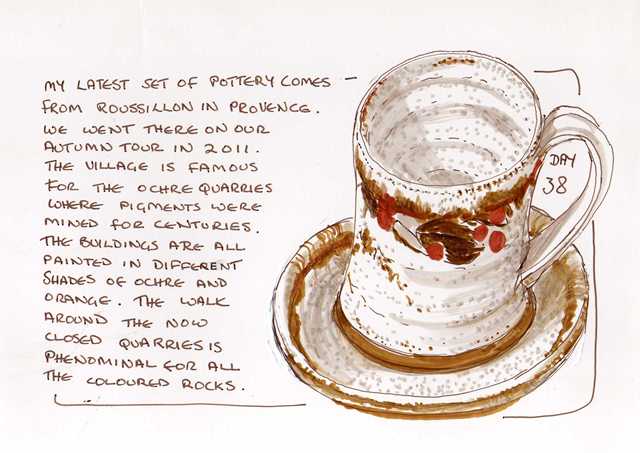 MY LATEST SET OF POTTERY COMES
FROM ROUSSILLON IN PROVENCE.
WE WENT THERE ON OUR
AUTUMN TOUR IN 2011.
THE VILLAGE IS FAMOUS
FOR THE OCHRE QUARRIES
WHERE PIGMENTS WERE
MINED FOR CENTURIES.
THE BUILDINGS ARE ALL
PAINTED IN DIFFERENT
SHADES OF OCHRE AND
ORANGE. THE WALK
AROUND THE NOW
CLOSED QUARRIES IS
PHENOMINAL FOR ALL
THE COLOURED ROCKS.
DAY
38